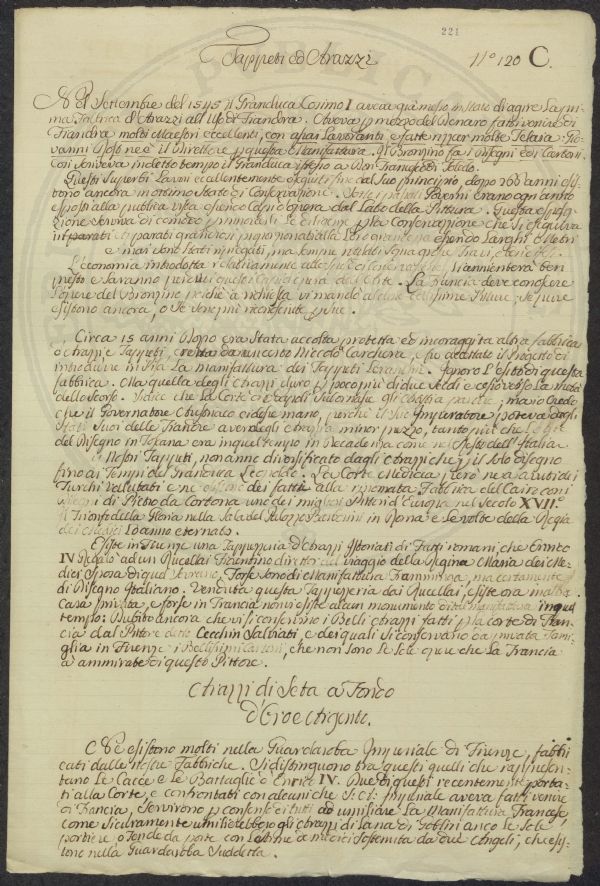 221
Tappeti ed Arazzi
N.o 120 C.
Nel Settembre del 1545 il Granduca Cosimo I aveva già messo in stato di agire la pri=
ma Fabbrica d'Arazzi all'Uso di Fiandra. Aveva p mezzo del Denaro fatti venire di
Fiandra molti Maestri eccellenti, con assai Lavoranti e fatte molte Telara. Gio=
vanni Rost ne è il Direttore p questa Manifattura. Il Bronzino fa i Disegni ed i Cartoni.
Così scriveva in detto tempo il Granduca stesso a Don Francesco di Toledo.
Questi Superbi Lavori eccellentemente eseguiti fino al suo principio, dopo 260 anni esi=
stono ancora in ottimo Stato di Conservazione. Sotto i passati Governi erano ogni anno
esposti alla publica vista essendo Capi d'opera dal Lato della Pittura. Questa esposi=
zione serviva di comodo p la Conservazione che si eseguiva
essendo Larghi
e mai sono stati ripiegati, ma sempre
L'economia introdotta relativamente alle spese di Conservazione, li annienterà ben
presto e saranno perduti questi Capi d'opera dell'Arte. La Francia deve conoscere
l'opere del Bronzino perchè a richiesta vi mandò alcune bellissime Pitture, se pure
esistono ancora, o se non più.
Circa 15 anni dopo era stata accolta protetta ed incoraggita altra fabbrica
d'Arazzi e Tappeti, eretta da un certo Niccolò, e fu accettato il Progetto di
introdurre in Pisa la manifattura dei Tappeti. Ignoro l'esito di questa
fabbrica. Ma quella degli Arazzi durò p poco più di due Secoli e cessò verso la metà
dello scorso. Si dice che la Corte di
che il Governatore ci desse mano, perchè il suo Imperatore poteva dagli
Stati Suoi delle Fiandre aver degli Arazzi a minor prezzo, tanto più che l'arte
del Disegno in Toscana era in quel tempo in decadenza come nel Resto dell'Italia.
I Nostri Tappeti, non anno diversificato dagli Arazzi che p il solo disegno
fino ai Tempi del Granduca Leopoldo. La Corte Medicea però ne aveva dei
Turchi Vellutati e ne esistono dei fatti alla rinomata Fabbrica del Cairo con i
Disegni di Pietro da Cortona uno dei migliori Pittori d'Europa nel Secolo XVII.o
Il Trionfo della Gloria nella Sala del Palazzo Barberini in Roma e le volte della Reggia
dei Medici lo anno eternato.
Esiste in Firenze una Tappezzeria d'Arazzi Istoriati di Fatti romani, che Enrico
IV Regalò ad un Rucellai Fiorentino direttor del viaggio della Regina Maria dei Me=
dici Sposa di quel Sovrano. Forse sono di Manifattura Fiamminga, ma certamente
di Disegno Italiano. Venduta questa Tappezzeria dai Rucellai, esiste ora in altra
casa privata, e forse in Francia non vi esiste alcun monumento di tal manifattura in quel
tempo: Dubito ancora che vi si conservino i Belli Arazzi fatti p la corte di Fran=
cia dal Pittore detto Cecchin Salviati, e dei quali si conservano da privata Fami=
glia in Firenze i Bellissimi Cartoni, che non sono le sole opere che la Francia
à ammirate di questo Pittore.
Arazzi di Seta a Fondo
d'Oro e Argento.
Ne esistono molti nella Guardaroba Imperiale di Firenze, fabbri
cati dalle nostre Fabbriche. Si distinguono tra questi quelli che rappresen=
tano le Cacce e le Battaglie d'Enrico IV. Due di questi recentemente porta=
ti alla Corte, e confrontati con alcuni che S: A: I: Imperiale aveva fatti venire
di Francia, servirono p consenso di tutti ad umiliare la Manifattura Francese
come sicuramente umilierebbero gli Arazzi di Lana di Goblins anco le sole
portiere o Tende da porte con l'Arme de Medici sostenuta da due Angeli, che esi=
stono nella Guardaroba Suddetta.